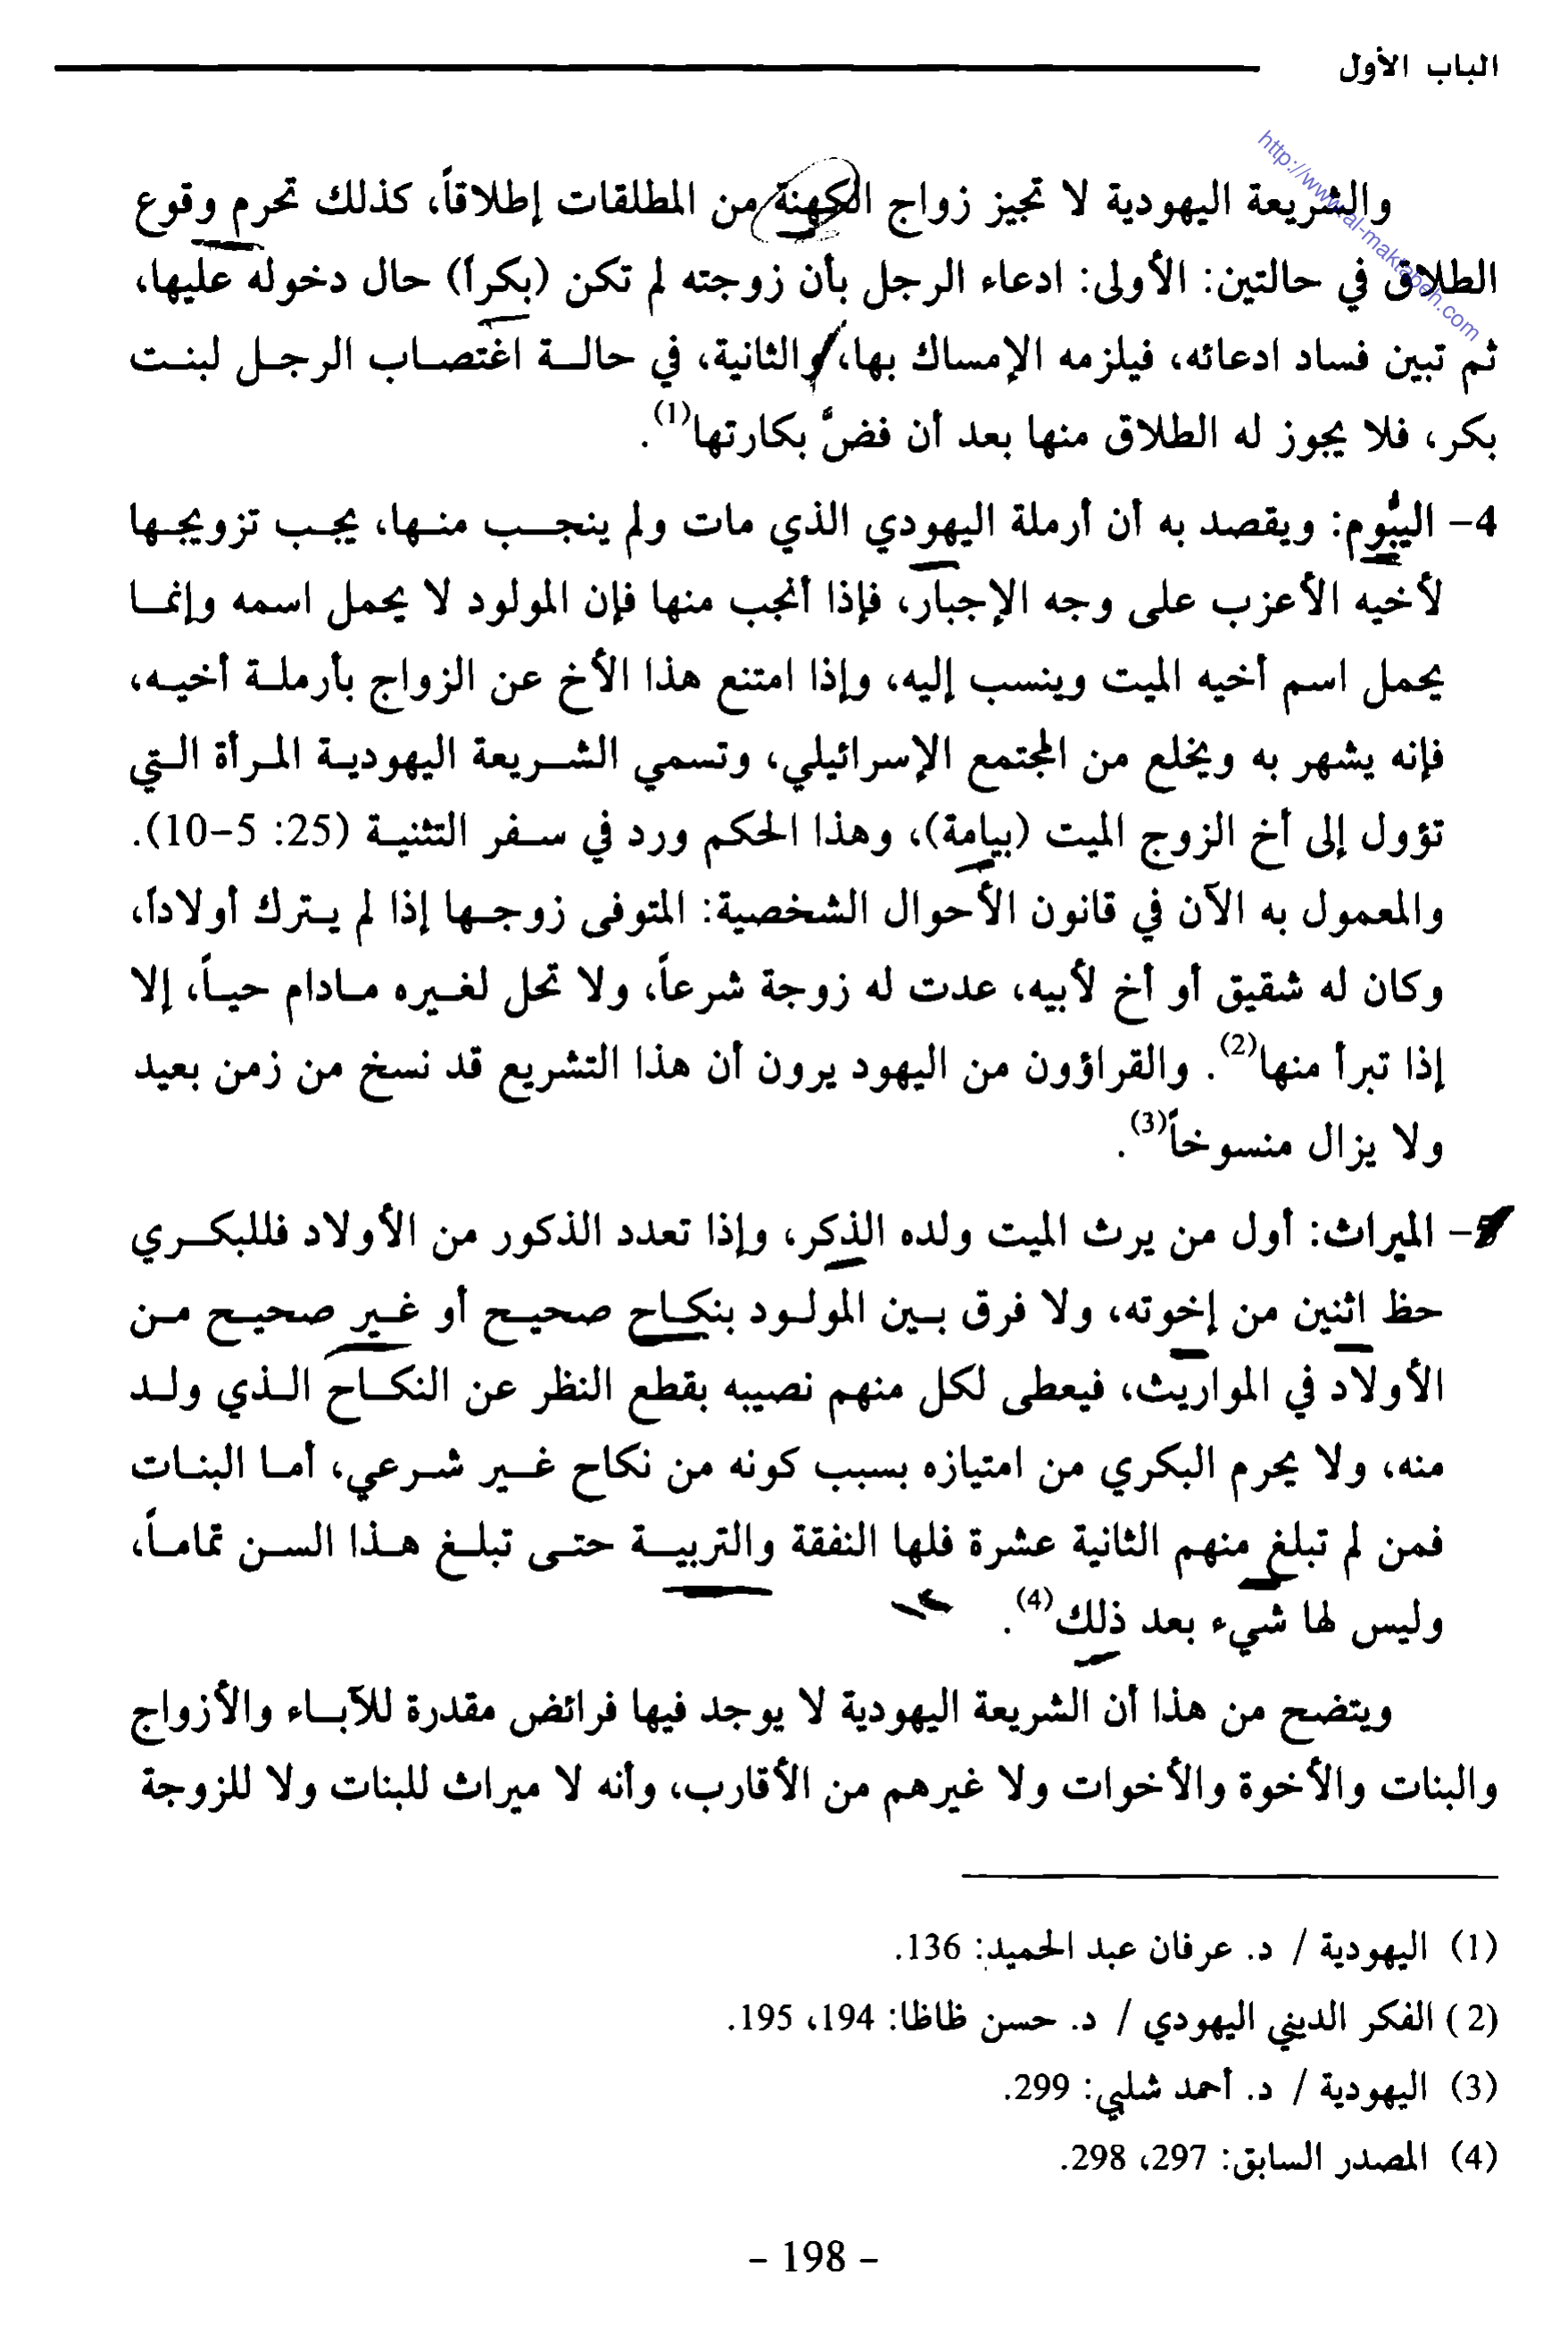 الباب الأول
http://www.al-maktabeh.com
والشريعة اليهودية لا تجيز زواج الكهنة من المطلقات إطلاقاً، كذلك تحرم وقوع
الطلاق في حالتين: الأولى: ادعاء الرجل بأن زوجته لم تكن (بكراً) حال دخوله عليها،
ثم تبين فساد ادعائه، فيلزمه الإمساك بها، والثانية، في حالة اغتصاب الرجل لبنت
بكر، فلا يجوز له الطلاق منها بعد أن فضَّ بكارتها(1).
4- اليبُّوم: ويقصد به أن أرملة اليهودي الذي مات ولم ينجب منها، يجب تزويجها
لأخيه الأعزب على وجه الإجبار، فإذا أنجب منها فإن المولود لا يحمل اسمه وإنما
يحمل اسم أخيه الميت وينسب إليه، وإذا امتنع هذا الأخ عن الزواج بأرملة أخيه،
فإنه يشهر به ويخلع من المجتمع الإسرائيلي، وتسمي الشريعة اليهودية المرأة التي
تؤول إلى أخ الزوج الميت (بيامة)، وهذا الحكم ورد في سفر التثنية (25: 5-10).
والمعمول به الآن في قانون الأحوال الشخصية: المتوفى زوجها إذا لم يترك أولاداً،
وكان له شقيق أو أخ لأبيه، عدت له زوجة شرعاً، ولا تحل لغيره مادام حياً، إلا
إذا تبرأ منها(2). والقراؤون من اليهود يرون أن هذا التشريع قد نسخ من زمن بعيد
ولا يزال منسوخاً(3).
- الميراث: أول من يرث الميت ولده الذكر، وإذا تعدد الذكور من الأولاد فللبكري
حظ اثنين من إخوته، ولا فرق بين المولود بنكاح صحيح أو غير صحيح من
الأولاد في المواريث، فيعطى لكل منهم نصيبه بقطع النظر عن النكاح الذي ولد
منه، ولا يحرم البكري من امتيازه بسبب كونه من نكاح غير شرعي، أما البنات
فمن لم تبلغ منهم الثانية عشرة فلها النفقة والتربية حتى تبلغ هذا السن تماماً،
وليس لها شيء بعد ذلك(4).
ويتضح من هذا أن الشريعة اليهودية لا يوجد فيها فرائض مقدرة للآباء والأزواج
والبنات والأخوة والأخوات ولا غيرهم من الأقارب، وأنه لا ميراث للبنات ولا للزوجة
(1) اليهودية / د. عرفان عبد الحميد: 136.
(2) الفكر الديني اليهودي / د. حسن ظاظا: 194، 195.
(3) اليهودية / د. أحمد شلبي: 299.
(4) المصدر السابق: 297، 298.
- 198 -